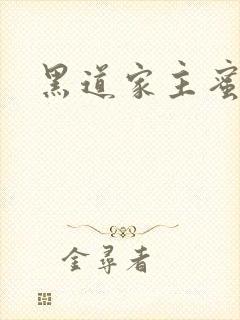 黑道家主蜜
金尋者